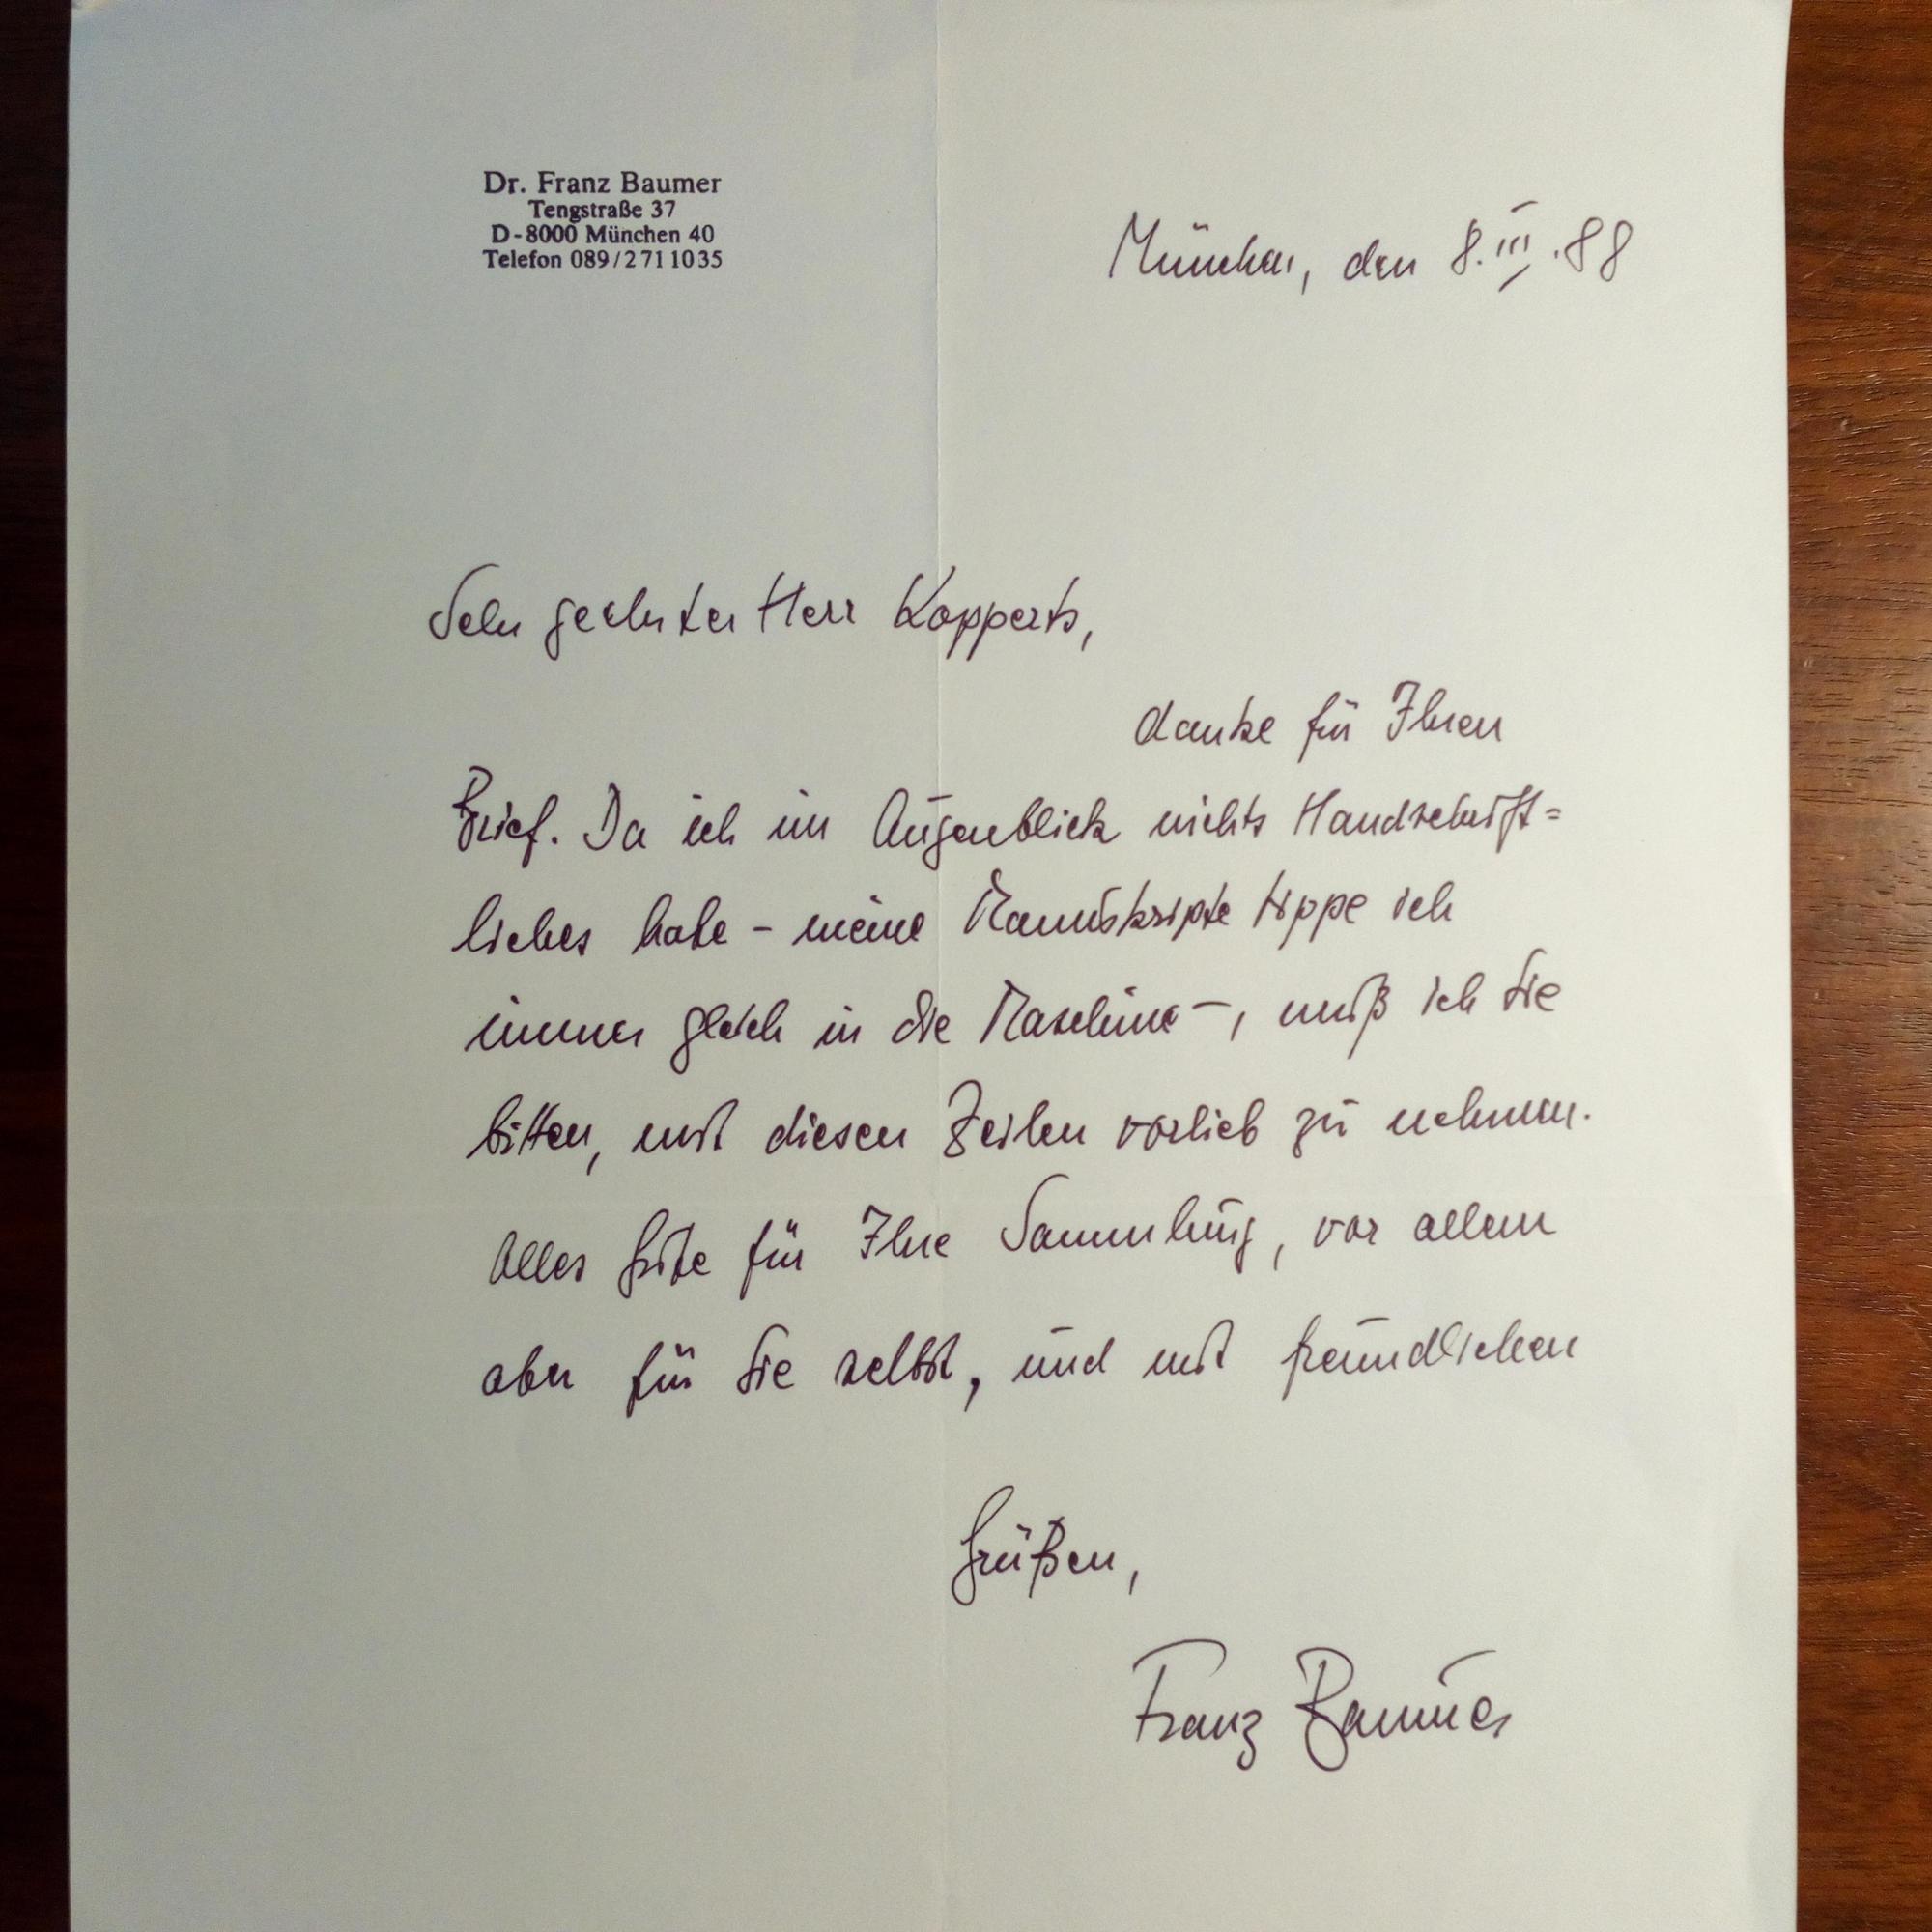 Dr. Franz Baumer
Tengstraße 37
D-8000 München 40
Telefon 089/2711035
München, den 8.III.88
Sehr geehrter Herr Kopperts,
danke für Ihren
Brief. Da ich im Augenblick nichts Handschrift=
liches habe - meine Manuskripte tippe ich
immer gleich in die Maschine -, muß ich Sie
bitten, mit diesen Zeilen vorlieb zu nehmen.
Alles Gute für Ihre Sammlung, vor allem
aber für Sie selbst, und mit freundlichen
Grüßen,
Franz Baumer